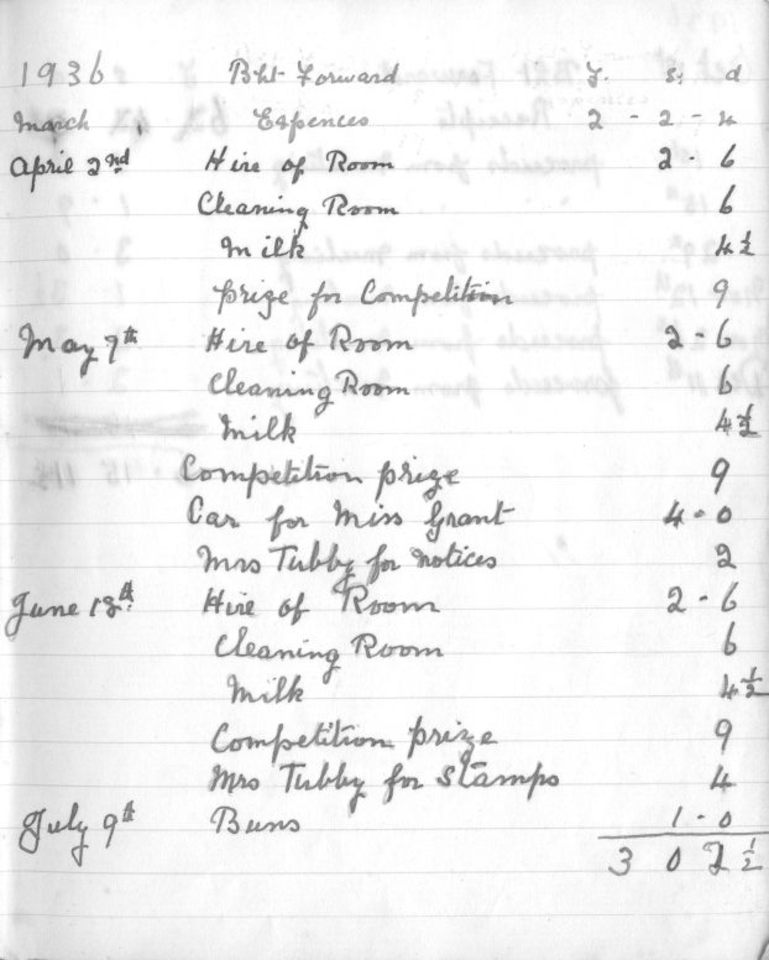 1936 Bht Forward £. s. d
March Expences 2 - 2 - 4
April 2nd Hire of Room 2 - 6
Cleaning Room 6
Milk 4 ½
prize for Competition 9
May 7th Hire of Room 2 - 6
Cleaning Room 6
Milk 4 ½
Competition prize 9
Car for Miss Grant 4 - 0
Mrs Tubby for notices 2
June 18th Hire of Room 2 - 6
Cleaning Room 6
Milk 4 ½
Competition prize 9
Mrs Tubby for Stamps 4
July 9th Buns 1 - 0
3 0 2 ½